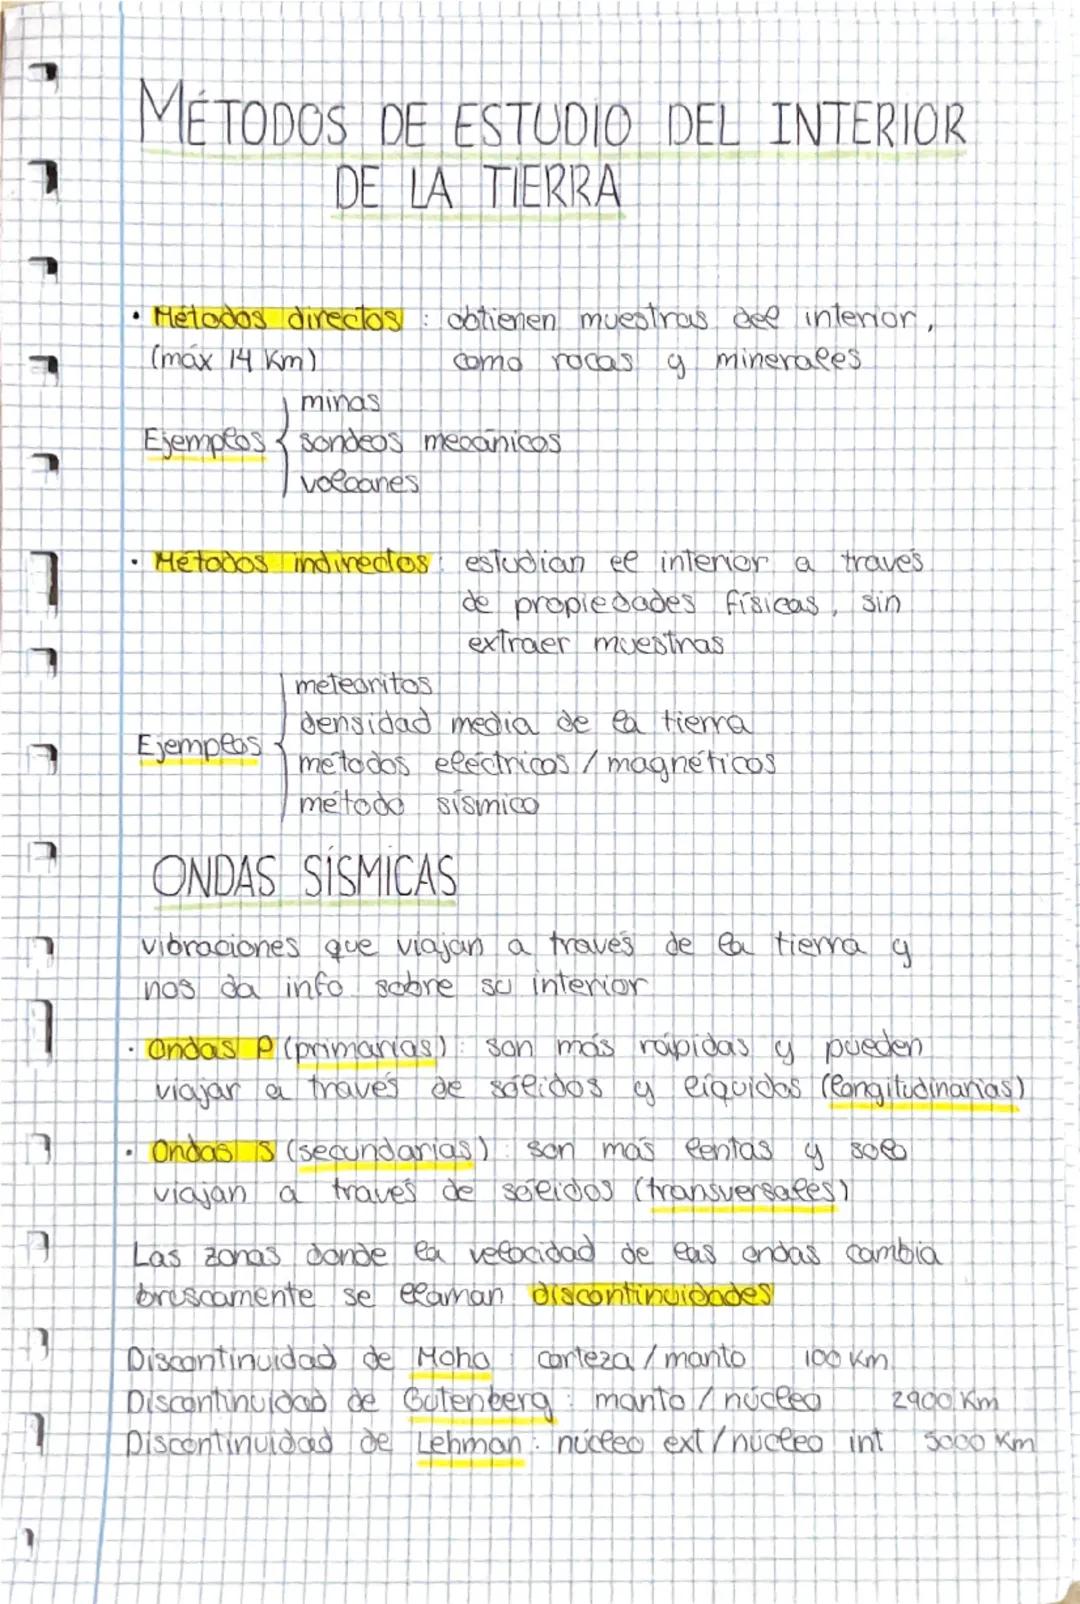 MÉTODOS DE ESTUDIO DEL INTERIOR
DE LA TIERRA
• Métodos directos : obtienen muestras del interior,
(máx 14 Km) como rocas y minerales
minas
Ejemplos { sondeos mecánicos
volcanes
• Métodos indirectos: estudian el interior a través
de propiedades físicas, sin
extraer muestras
meteoritos
densidad media de la tierra
Ejemplos {
métodos eléctricos / magnéticos
método sísmico
ONDAS SÍSMICAS
vibraciones que viajan a través de la tierra y
nos da info sobre su interior
• Ondas P (primarias): son más rápidas y pueden
viajar a través de sólidos y líquidos (longitudinarias)
• Ondas S (secundarias): son más lentas y solo
viajan a través de sólidos (transversales)
Las zonas donde la velocidad de las ondas cambia
bruscamente se llaman discontinuidades
Discontinuidad de Moho : corteza / manto 100 Km
Discontinuidad de Gutenberg : manto / núcleo 2900 Km
Discontinuidad de Lehman : núcleo ext / núcleo int 5000 Km